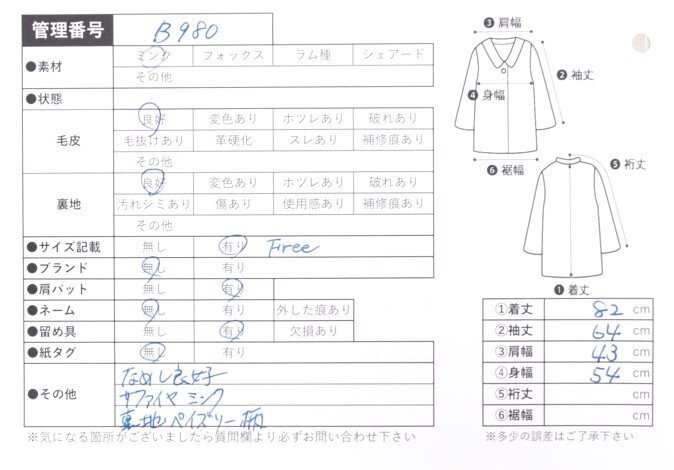 管理番号 B980
●素材 ミンク フォックス ラム種 シェアード
その他
●状態
毛皮 良好 変色あり ホツレあり 破れあり
毛抜けあり 革硬化 スレあり 補修痕あり
その他
裏地 良好 変色あり ホツレあり 破れあり
汚れシミあり 傷あり 使用感あり 補修痕あり
その他
●サイズ記載 無し 有り Free
●ブランド 無し 有り
●肩パット 無し 有り
●ネーム 無し 有り 外した痕あり
●留め具 無し 有り 欠損あり
●紙タグ 無し 有り
●その他 なめし良好
サファイヤミンク
裏地ペイズリー柄
※気になる箇所がございましたら質問欄より必ずお問い合わせ下さい
❸肩幅
❷袖丈
❹身幅
❻裾幅
❺裄丈
❶着丈
①着丈 82 cm
②袖丈 64 cm
③肩幅 43 cm
④身幅 54 cm
⑤裄丈 cm
⑥裾幅 cm
※多少の誤差はご了承下さい